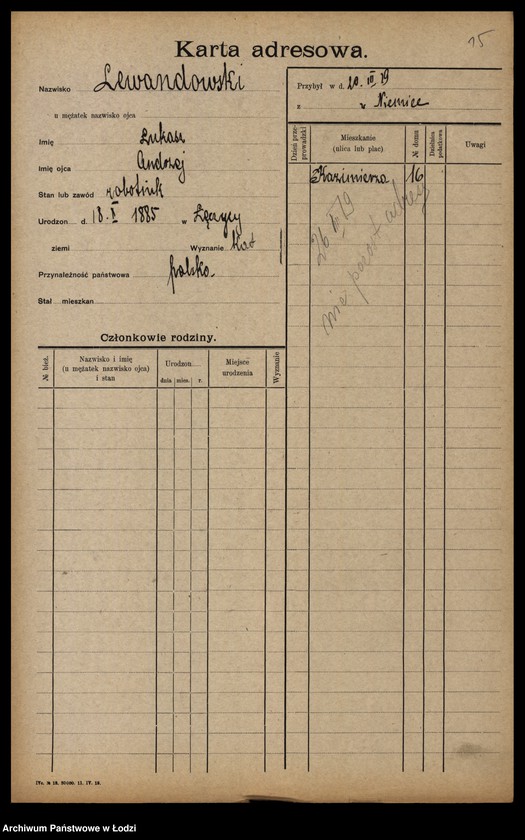 15
Karta adresowa.
Nazwisko Lewandowski
u mężatek nazwisko ojca
Imię Łukasz
Imię ojca Andrzej
Stan lub zawód robotnik
Urodzon d. 18. X 1885 w Łęczycy
ziemi Wyznanie kat
Przynależność państwowa polska
Stał mieszkan
Przybył w d. 20. III 19
z w Niemiec
Dzień przeprowadzki
Mieszkanie
(ulica lub plac)
№ domu
Dzielnica policyjna
Uwagi
Kazimierza 16
26 19
nie podał adresu
Członkowie rodziny.
№ bież.
Nazwisko i imię
(u mężatek nazwisko ojca)
i stan
Urodzon
dnia mies. r.
Miejsce
urodzenia
Wyznanie
Archiwum Państwowe w Łodzi